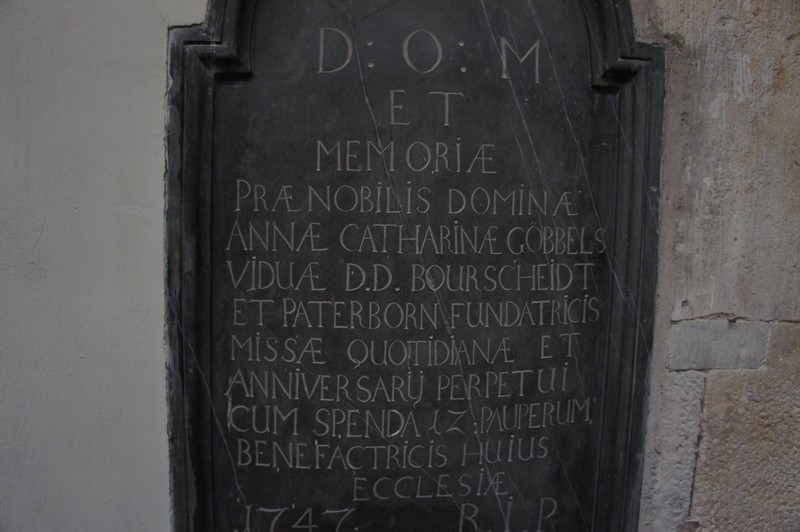 D : O : M
ET
MEMORIÆ
PRÆNOBILIS DOMINÆ
ANNÆ CATHARINÆ GÖBBELS
VIDUÆ D.D. BOURSCHEIDT
ET PATERBORN FUNDATRICIS
MISSÆ QUOTIDIANÆ ET
ANNIVERSARIJ PERPETUI
CUM SPENDA 12: PAUPERUM,
BENEFACTRICIS HUIUS
ECCLESIÆ
1747. R.I.P.